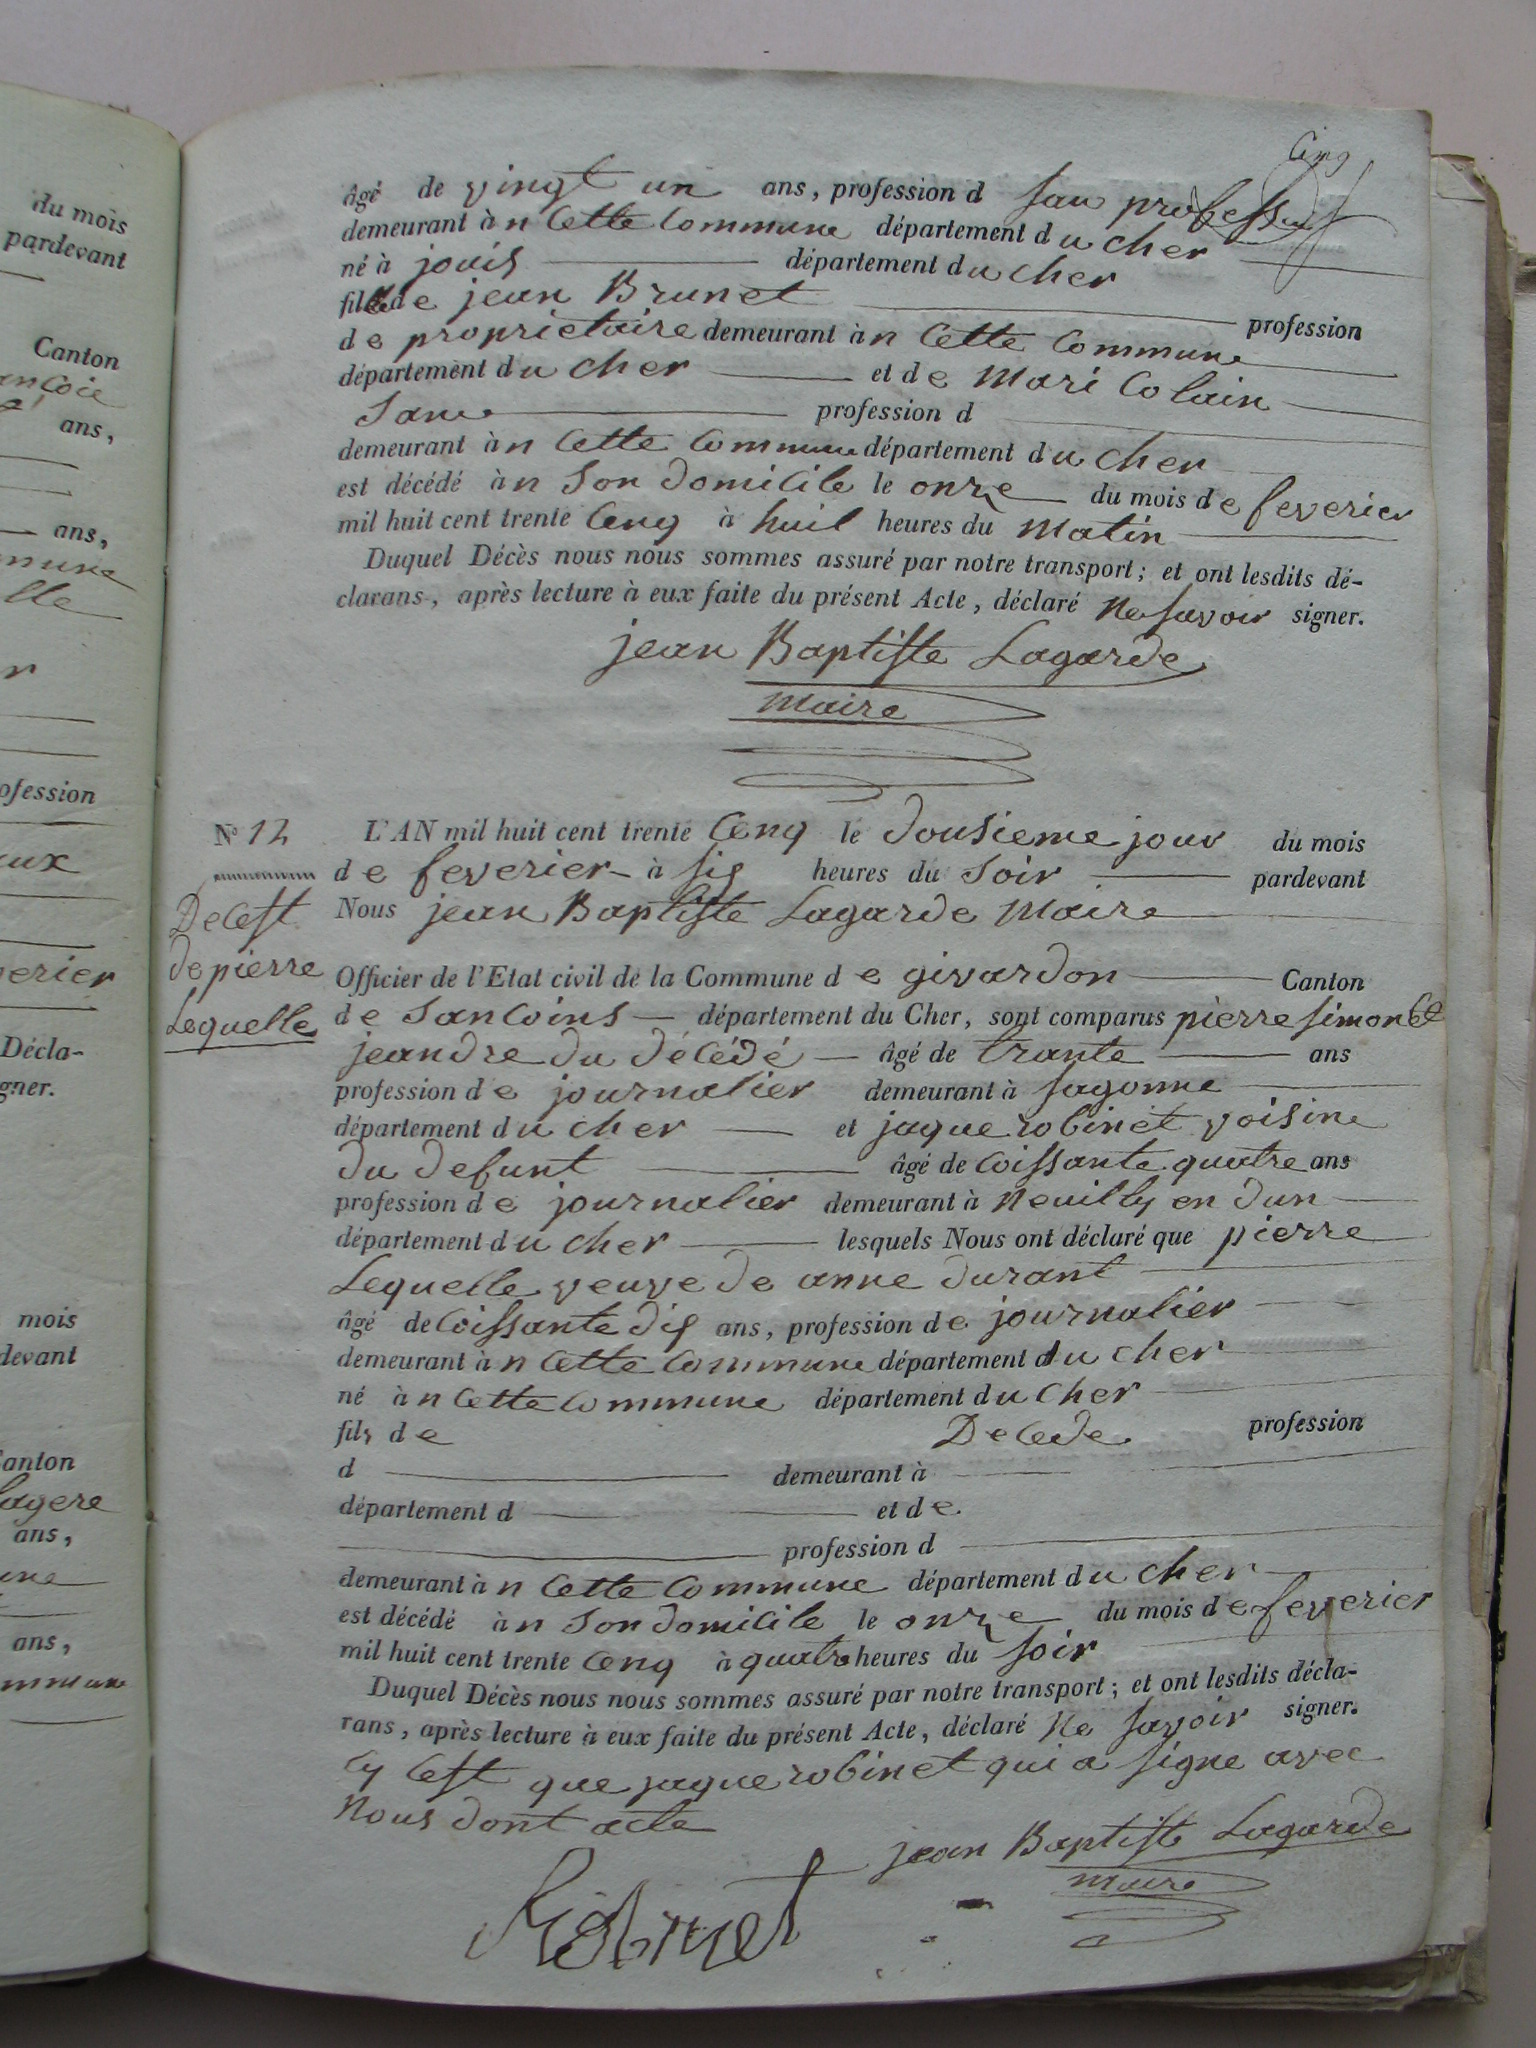 du mois
pardevant
Canton
ans,
ans,
mmune
elle
profession
aux
verier
Décla-
gner.
mois
devant
Canton
lagere
ans,
ans,
ommune
Cinq
âgé de vingt un ans, profession d San profession
demeurant àn Cette Commune département du cher
né à jouis département du cher
fille de jean Brunet profession
de proprietaire demeurant àn Cette Commune
département du cher et de Mari Colain
Sane profession d
demeurant àn Cette Commune département du cher
est décédé àn Son domicile le onze du mois de feverier
mil huit cent trente Cenq à huil heures du Matin
Duquel Décès nous nous sommes assuré par notre transport; et ont lesdits dé-
clarans, après lecture à eux faite du présent Acte, déclaré Ne Savoir signer.
jean Baptiste Lagarde
Maire
N° 12
Decest
de pierre
Lequelle
L'AN mil huit cent trente Cenq le dousieme jour du mois
de feverier à sis heures du Soir pardevant
Nous jean Baptiste Lagarde Maire
Officier de l'Etat civil de la Commune de givardon Canton
de Sancoins département du Cher, sont comparus pierre simonet
jeandre du décédé âgé de trante ans
profession de journalier demeurant à Sagonne
département du cher et jaque robinet voisine
du defunt âgé de Coissante quatre ans
profession de journalier demeurant à Neuilly en dun
département du cher lesquels Nous ont déclaré que pierre
Lequelle veuve de anne durant
âgé de Coissante dis ans, profession de journalier
demeurant àn Cette Commune département du cher
né àn Cette Commune département du cher
fils de Decede profession
d demeurant à
département d et de
profession d
demeurant àn Cette Commune département du cher
est décédé àn Son domicile le onze du mois de feverier
mil huit cent trente Cenq à quatre heures du Soir
Duquel Décès nous nous sommes assuré par notre transport; et ont lesdits décla-
rans, après lecture à eux faite du présent Acte, déclaré Ne Savoir signer.
Cy Cest que jaque robinet qui a signe avec
Nous dont acte
jean Baptiste Lagarde
Maire
Robinet